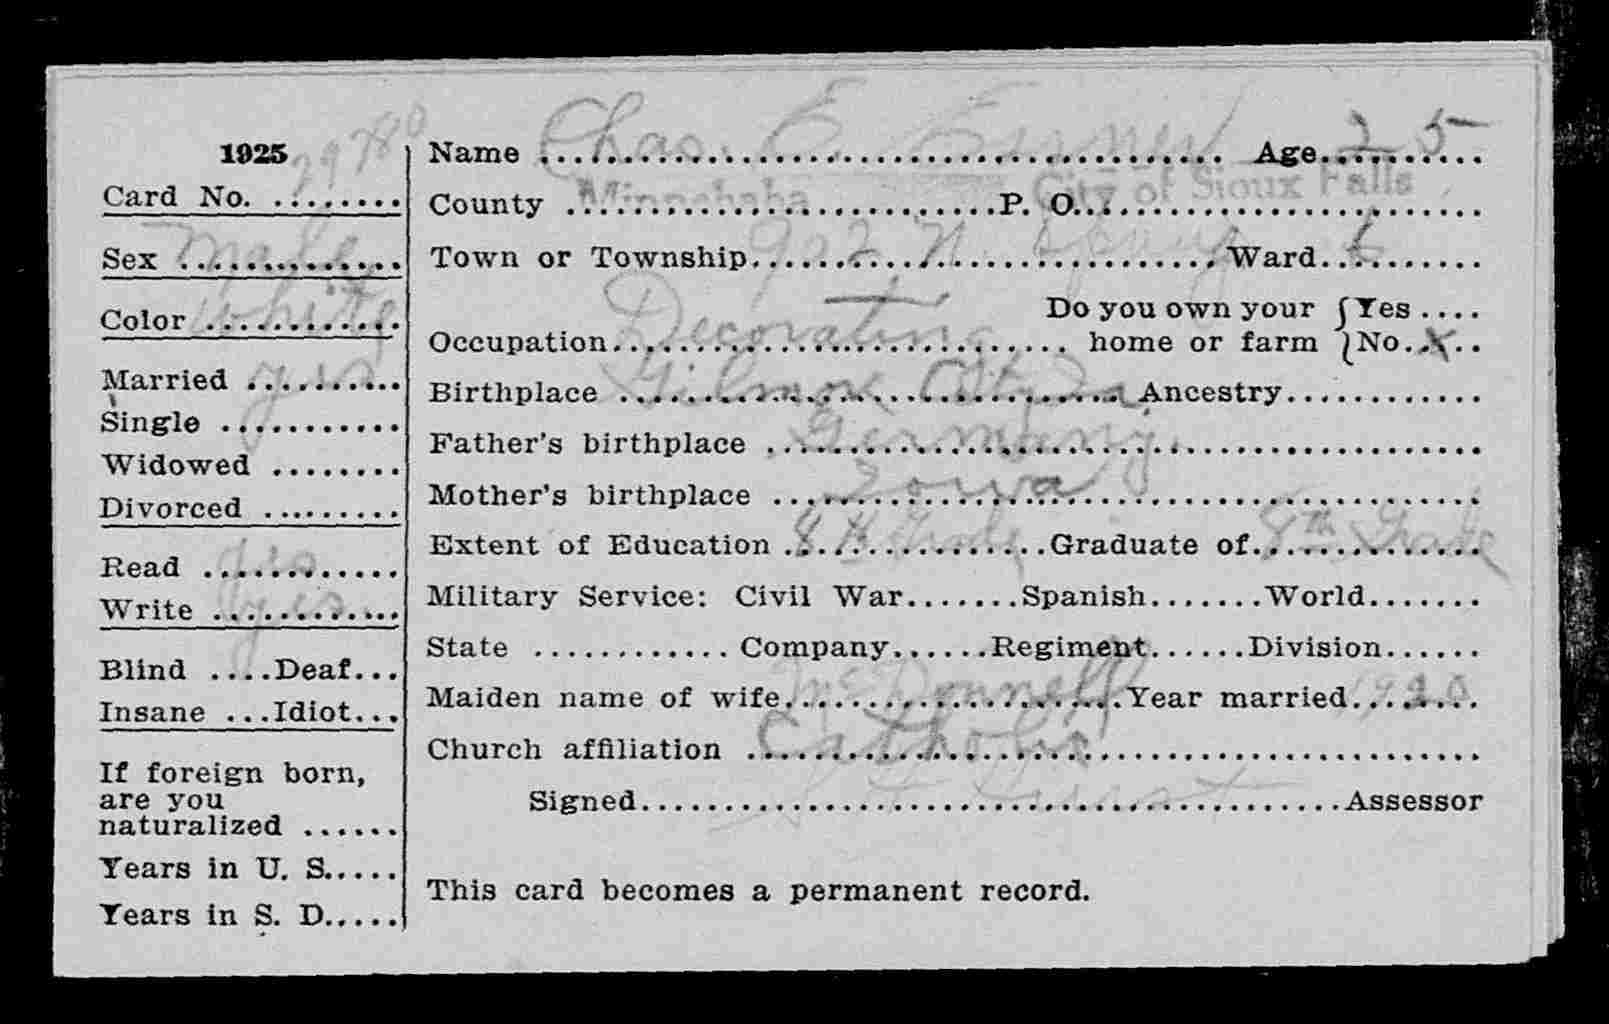 1925
Card No. ........ 29780
Sex ............. Male
Color ............ White
Married .......... yes
Single ...........
Widowed ........
Divorced .........
Read ............ Yes
Write ............ yes
Blind ....Deaf...
Insane ...Idiot...
If foreign born,
are you
naturalized ......
Years in U. S.....
Years in S. D.....
Name Chas. E. Age 25
County Minnehaha P. O. City of Sioux Falls
Town or Township 902 N. Spring Ward 6
Do you own your { Yes ....
Occupation Decorating home or farm { No. X
Birthplace Gilmore City Ia. Ancestry............
Father's birthplace Germany.
Mother's birthplace Iowa
Extent of Education 8th Grade Graduate of 8th Grade
Military Service: Civil War.......Spanish.......World.......
State ............ Company......Regiment......Division......
Maiden name of wife McDonnell Year married 1920
Church affiliation Catholic
Signed Assessor
This card becomes a permanent record.